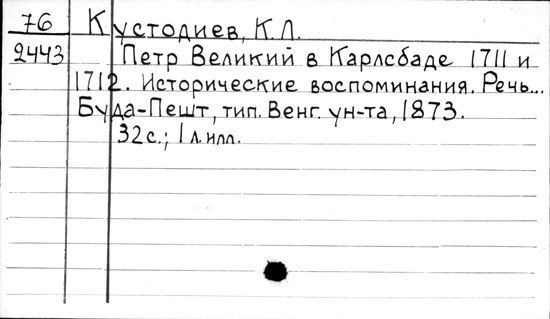 76 Кустодиев, К.Л.
2443 Петр Великий в Карлсбаде 1711 и
1712. Исторические воспоминания. Речь...
Буда-Пешт, тип. Венг. ун-та, 1873.
32с.; 1 л. илл.